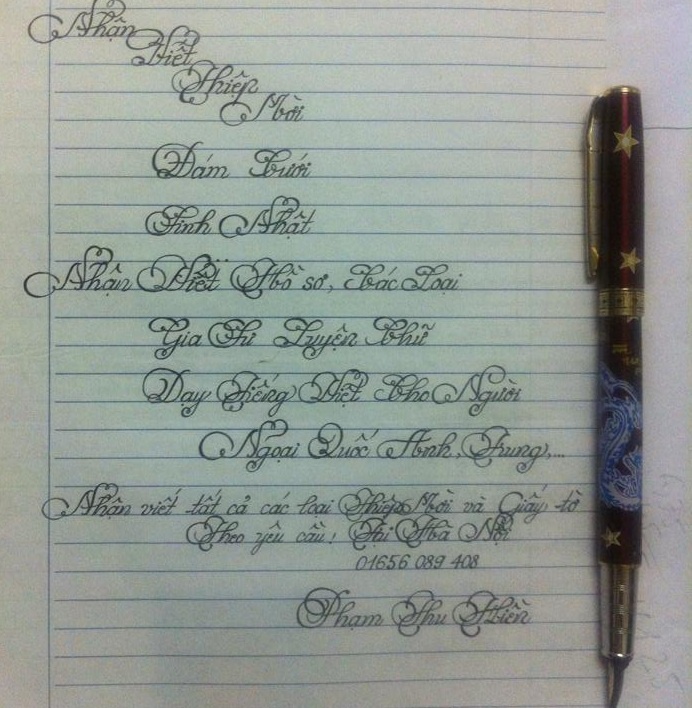 Nhận
Viết
Thiệp
Mời
Đám Cưới
Sinh Nhật
Nhận Viết Hồ sơ, Các Loại
Gia Sư Luyện Chữ
Dạy Tiếng Việt Cho Người
Ngoại Quốc Anh, Trung,...
Nhận viết tất cả các loại Thiệp Mời và Giấy tờ
Theo yêu cầu! Tại Hà Nội
01656 089 408
Phạm Thu Hiền